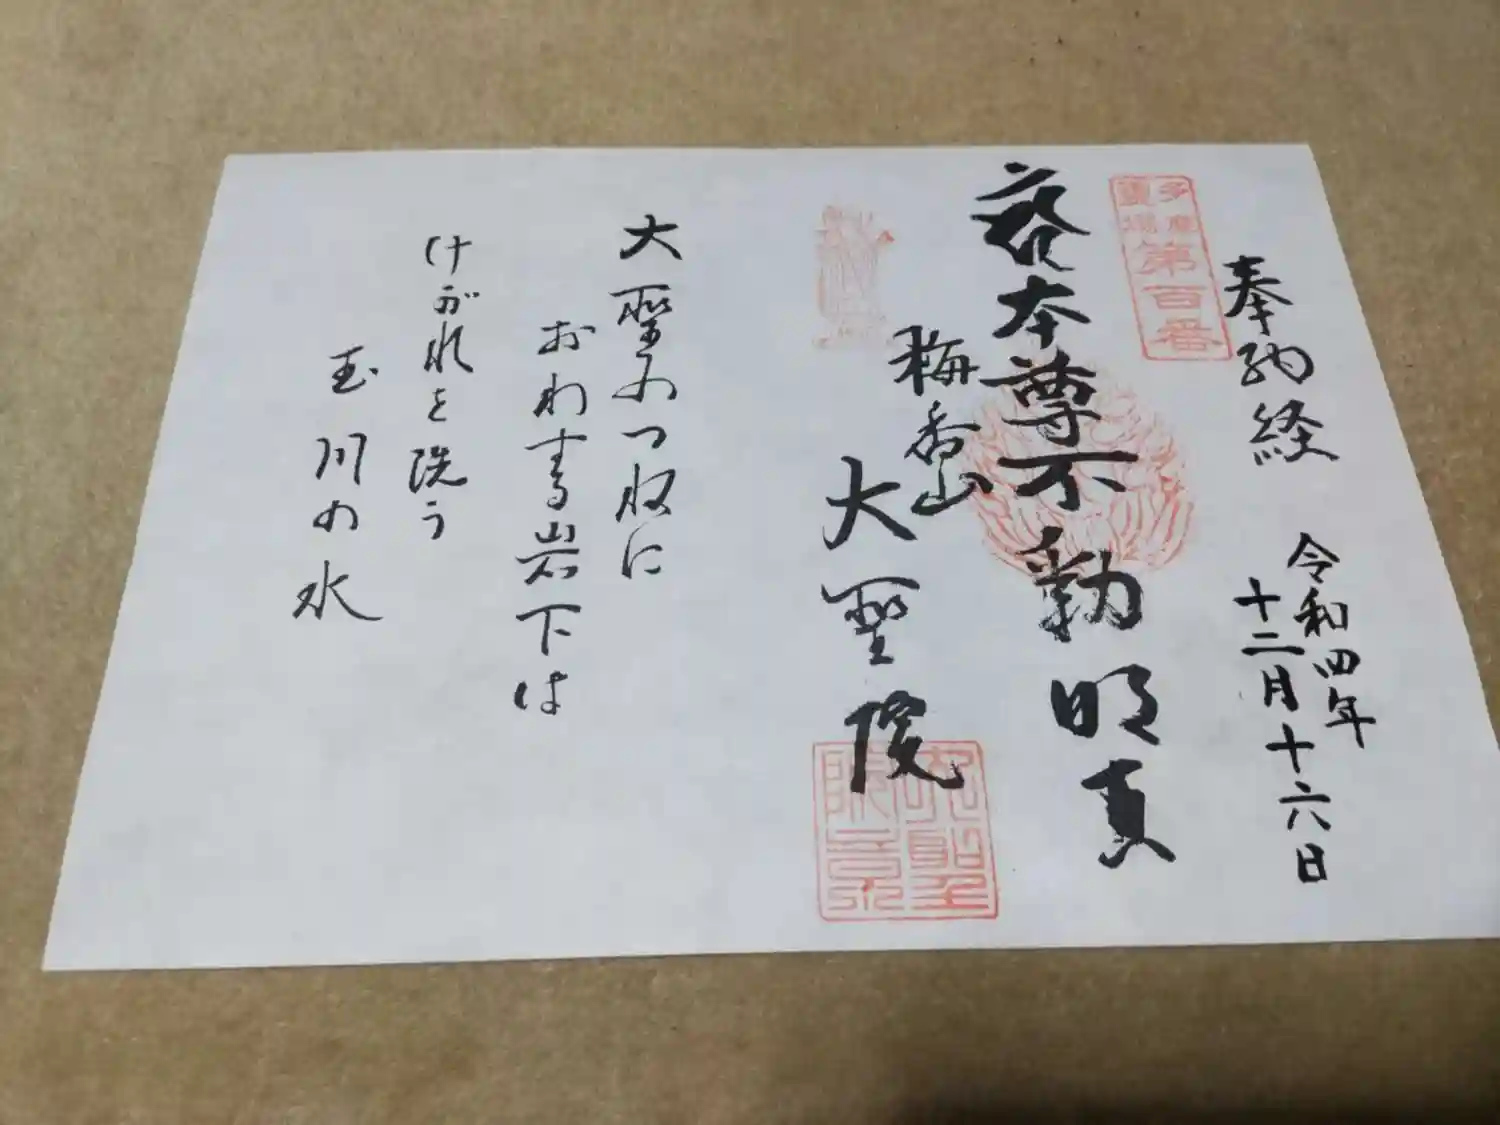 奉納経
令和四年
十二月十六日
多摩
霊場
第百番
本尊不動明
梅香山
大聖院
大聖のつねに
おわする岩下は
けがれを洗う
玉川の水